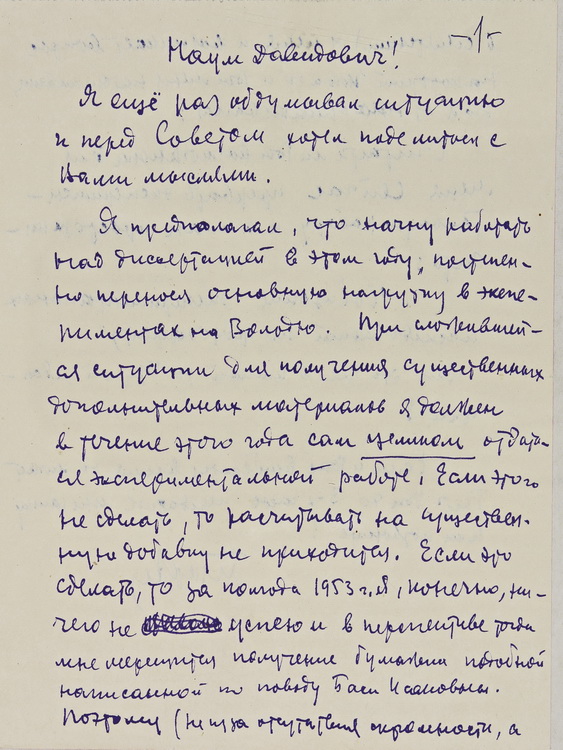 -1-
Наум Давидович!
Я ещё раз обдумывал ситуацию
и перед Советом хотел поделиться с
Вами мыслями.
Я предполагал, что начну работать
над диссертацией в этом году, постепен-
но перенося основную нагрузку в экспе-
риментах на Володю. При сложившей-
ся ситуации для получения существенных
дополнительных материалов я должен
в течение этого года сам целиком отдать-
ся экспериментальной работе. Если этого
не сделать, то расчитывать на существен-
ную добавку не приходится. Если это
сделать, то за полгода 1953 г. я, конечно, ни-
чего не успею и в перспективе тогда
мне мерещится получение бумажки подобной
написанной по поводу Баси Исааковны.
Поэтому (не из за отсутствия скромности, а